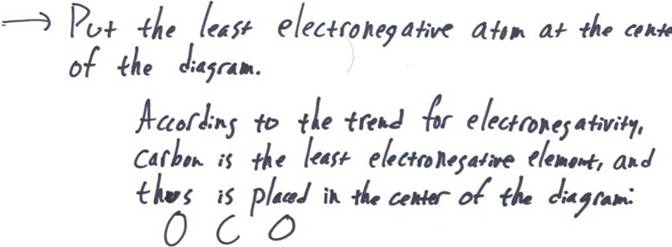 → Put the least electronegative atom at the cente
of the diagram.
According to the trend for electronegativity,
carbon is the least electronegative element, and
thus is placed in the center of the diagram:
O C O